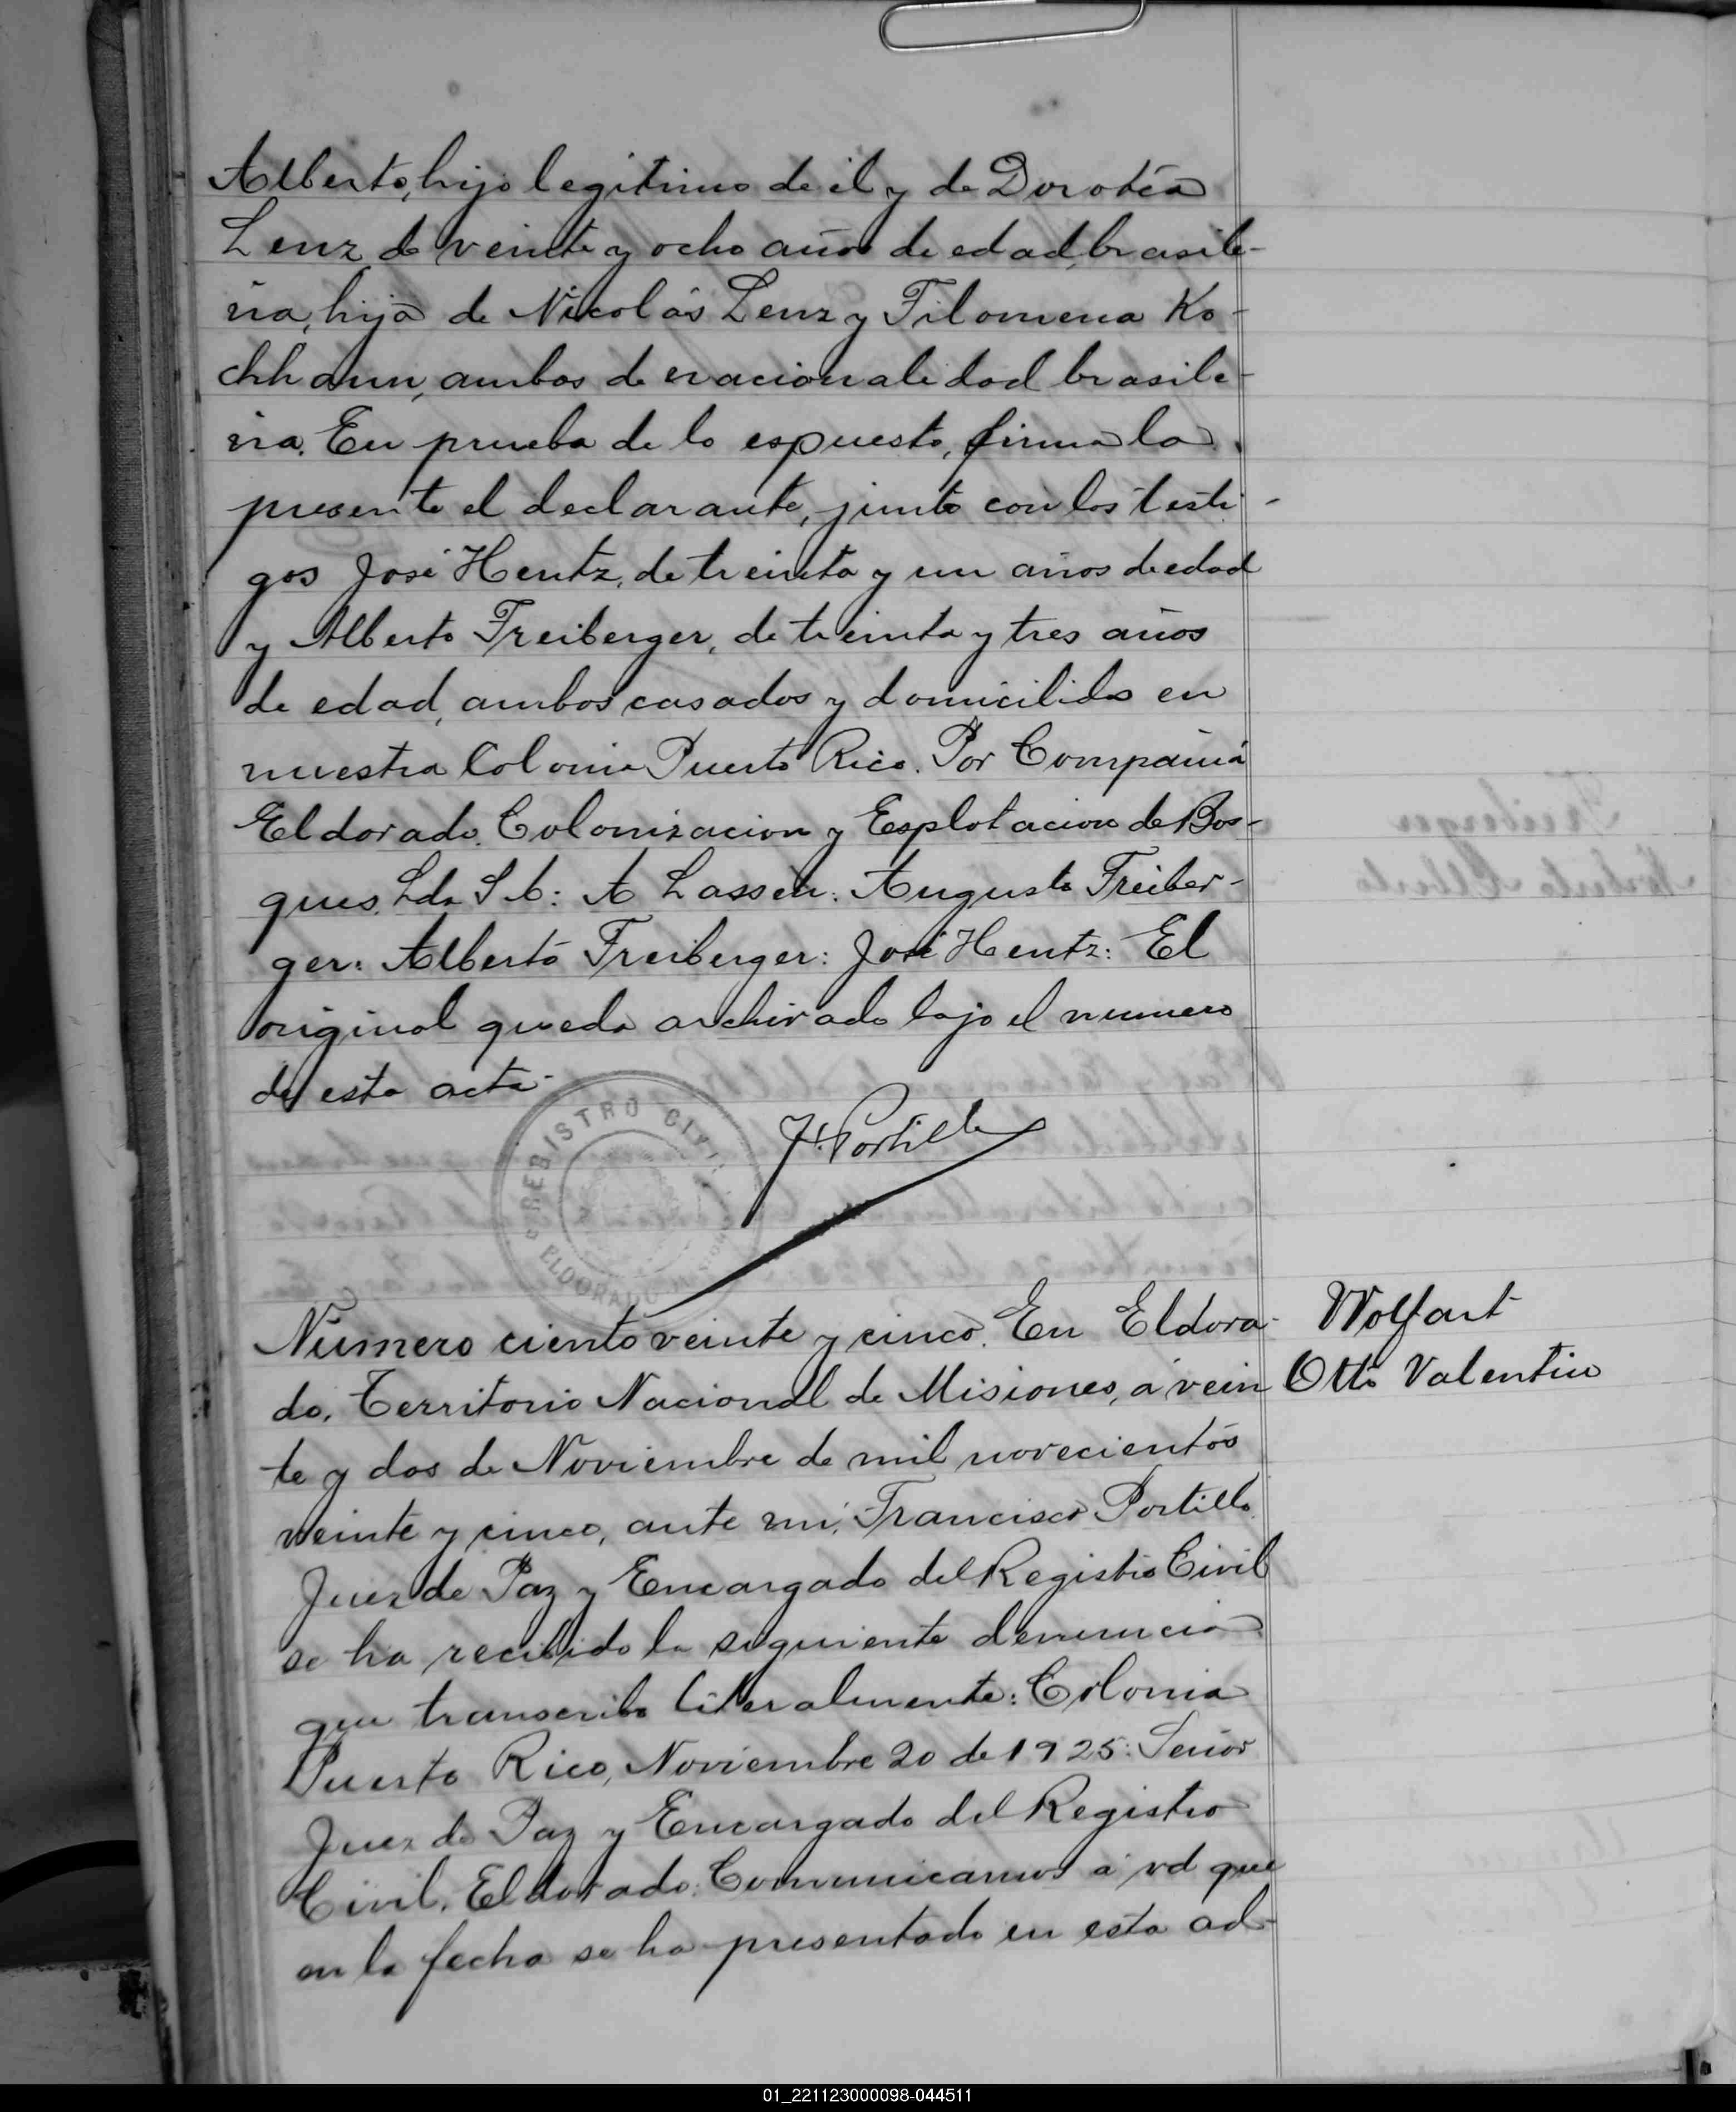 Alberto, hijo legitimo de él y de Dorotéa
Lenz de veinte y ocho años de edad, brasile-
ña, hija de Nicolás Lenz y Filomena Ko-
chhann, ambos de nacionalidad brasile-
ña. En prueba de lo espuesto, firma la
presente el declarante, junto con los testi-
gos José Hentz, de treinta y un años de edad
y Alberto Freiberger, de treinta y tres años
de edad, ambos casados y domicilidos en
nuestra Colonia Puerto Rico. Por Compañia
Eldorado. Colonizacion y Esplotacion de Bos-
ques. Lda S. A: A Lassen: Augusto Freiber-
ger: Alberto Freiberger: José Hentz: El
original queda archivado bajo el numero
de esta acta-
REGISTRO CIVIL
ELDORADO
F. Portillo
Numero ciento veinte y cinco. En Eldora-
do, Territorio Nacional de Misiones, á vein
te y dos de Noviembre de mil novecientos
veinte y cinco, ante mi, Francisco Portillo
Juez de Paz y Encargado del Registro Civil
se ha recibido la siguiente denuncia
que transcribo literalmente: Colonia
Puerto Rico, Noviembre 20 de 1925: Señor
Juez de Paz y Encargado del Registro
Civil. Eldorado: Comunicamos á vd que
en la fecha se ha presentado en esta ad-
Wolfart
Otto Valentin
01_221123000098-044511